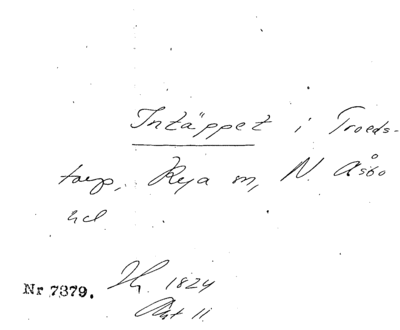 Intäppet i Troeds-
torp, Rya sn, N. Åsbo
hd
Nr 7379. 1824
Akt 11